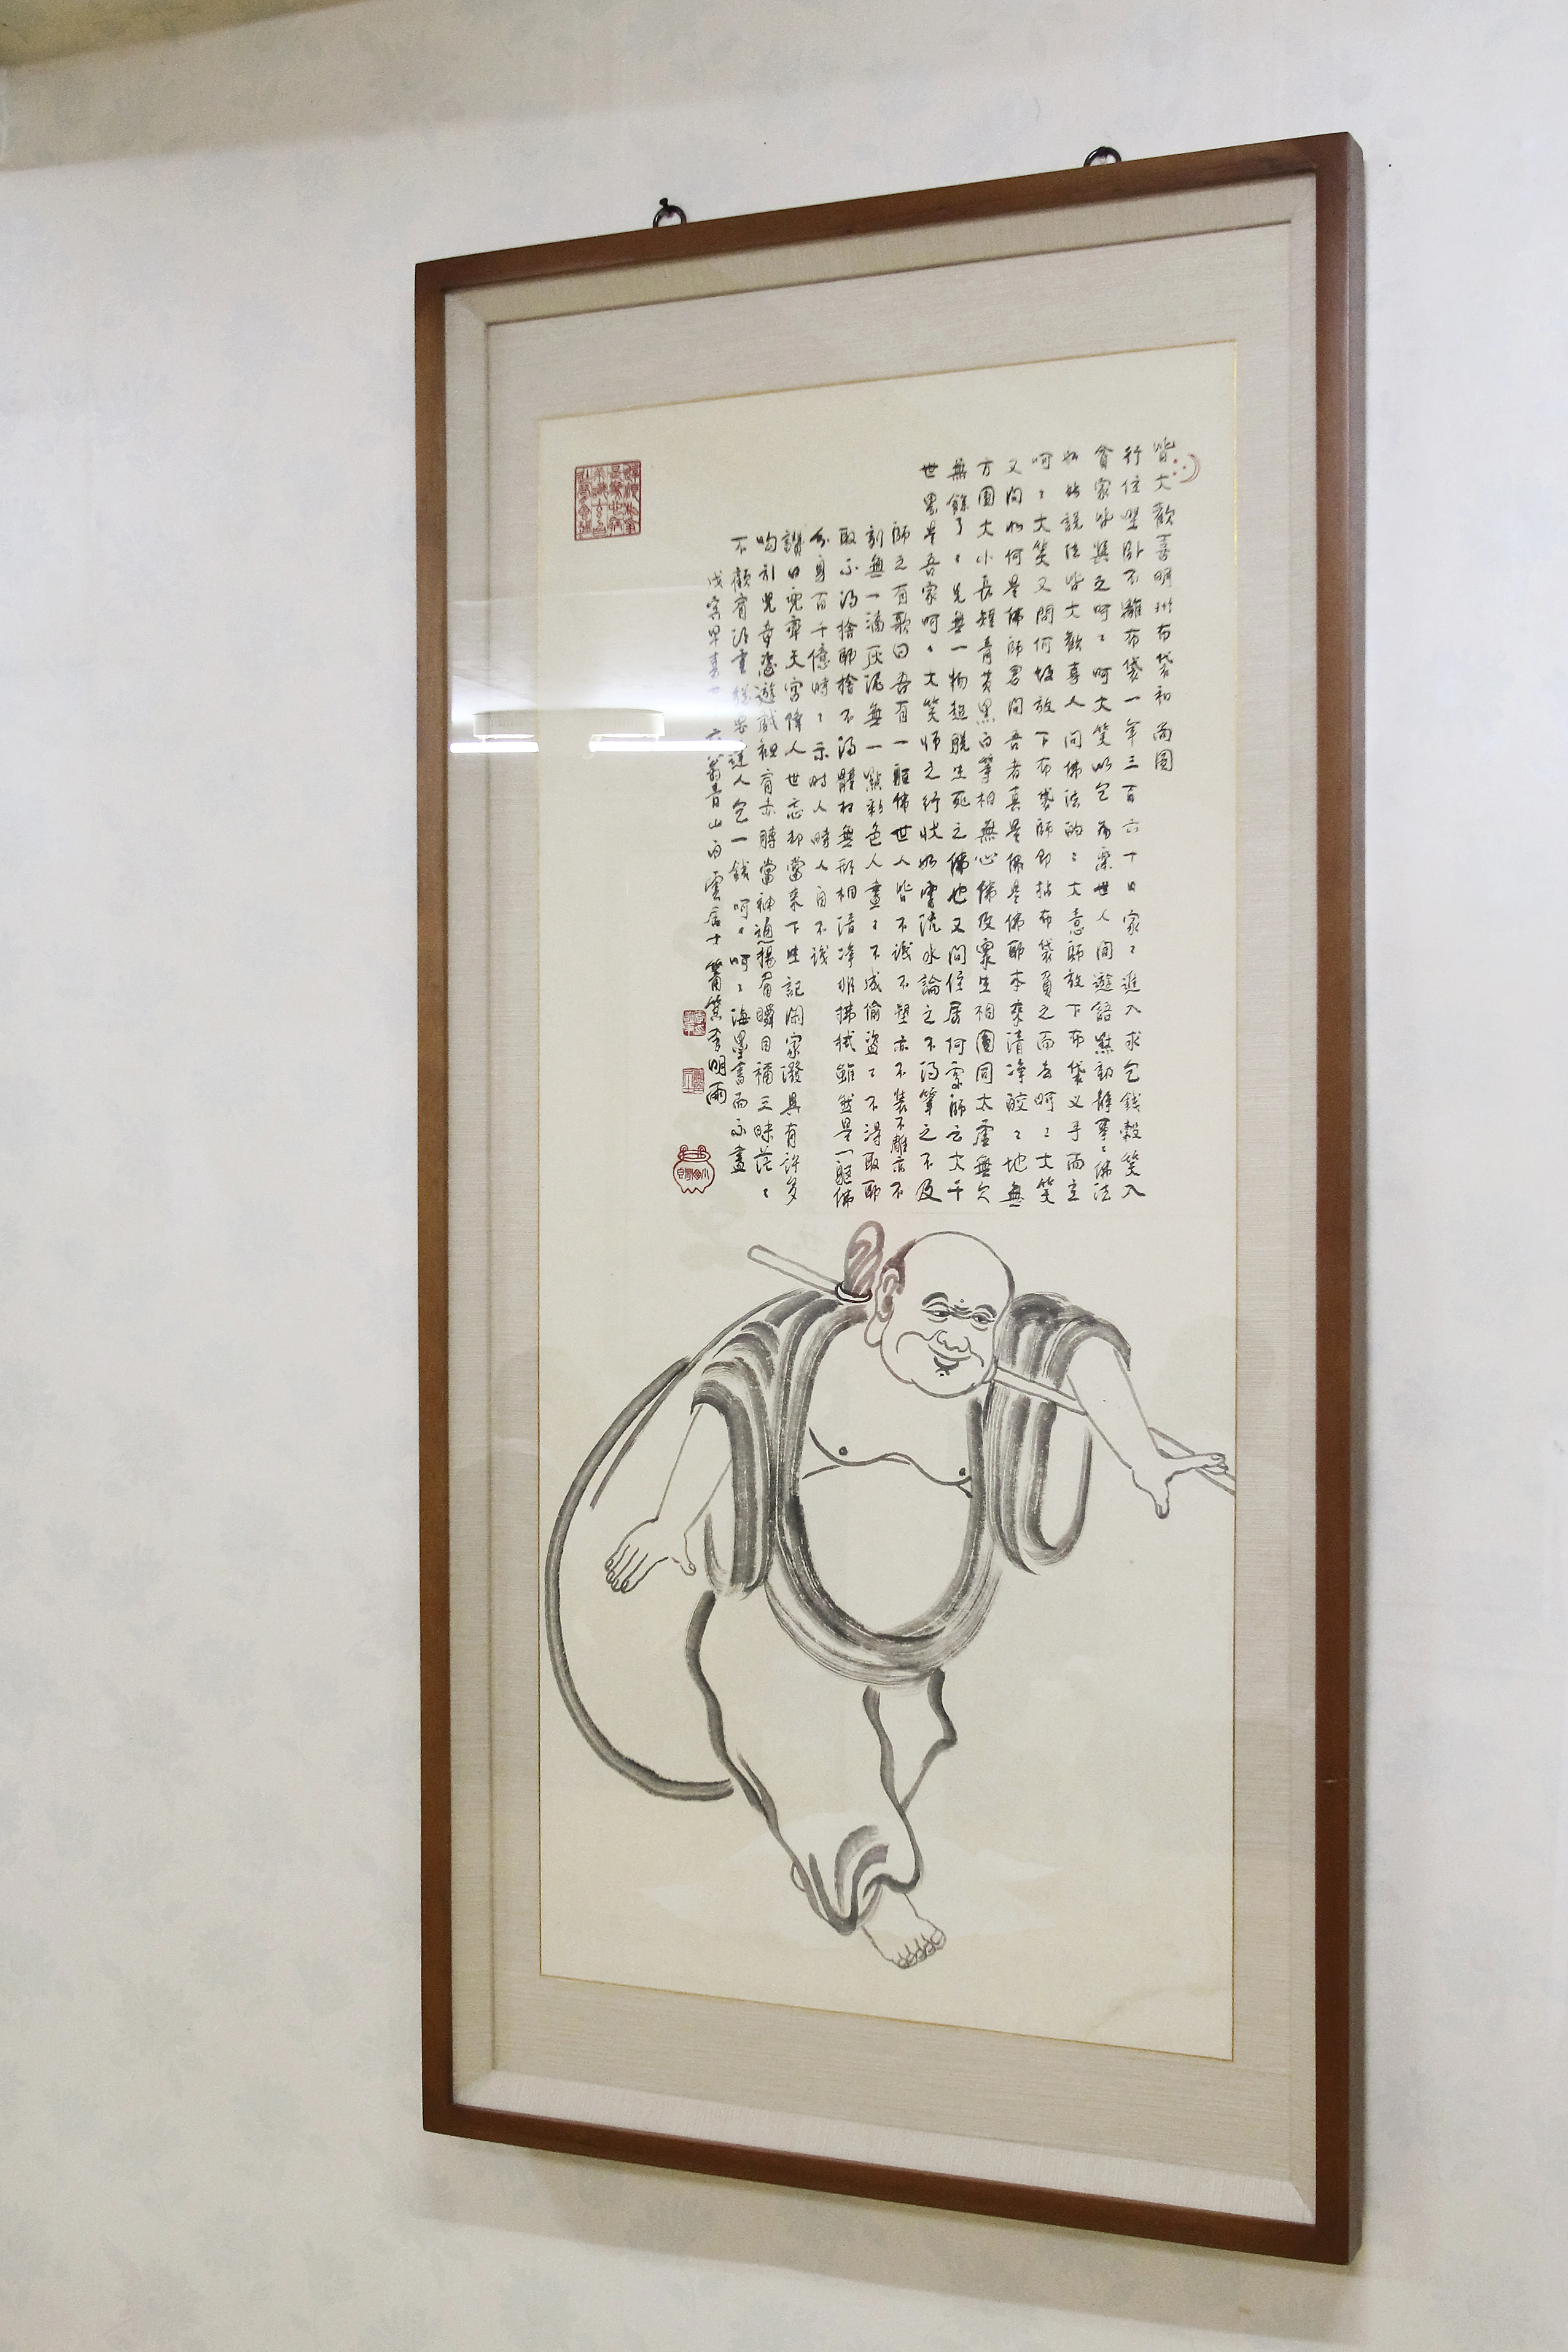 皆大歡喜明州布袋和尚圖
行住坐臥不離布袋一年三百六十日家〻進入求乞錢穀笑入
貧家皆與之呵〻呵大笑以乞為樂世人間遊語默動靜事〻佛法
說法皆大歡喜人問佛法的〻大意師放下布袋叉手而立
呵〻大笑又問何故放下布袋師即拈布袋負之而去呵〻大笑
又問如何是佛師答問吾者真是佛是佛師本來清淨皎〻地無
方圓大小長短青黃黑白等相無心佛及眾生相圓同太虛無欠
無餘了〻先無一物超脫生死之佛也又問住居何處師云大千
世界是吾家呵〻大笑師之行狀如雲流水論之不得筆之不及
師之有歌曰吾有一軀佛世人皆不識不塑亦不裝不雕亦不
刻無一滴灰泥無一點彩色人畫〻不成偷盜〻不得取師
取不得捨師捨不得體相無形相清淨非拂拭雖然是一軀佛
分身百千億時〻示時人時人自不識
讚曰兜率天宮降人世忘却當來下生記閑家潑具有許多
引兒童遊戲袒肩赤膊當神通揚眉瞬目三昧茫〻
不顧人乞一錢呵〻呵〻海墨書而不盡
戊寅早春青山白雲居士李明雨